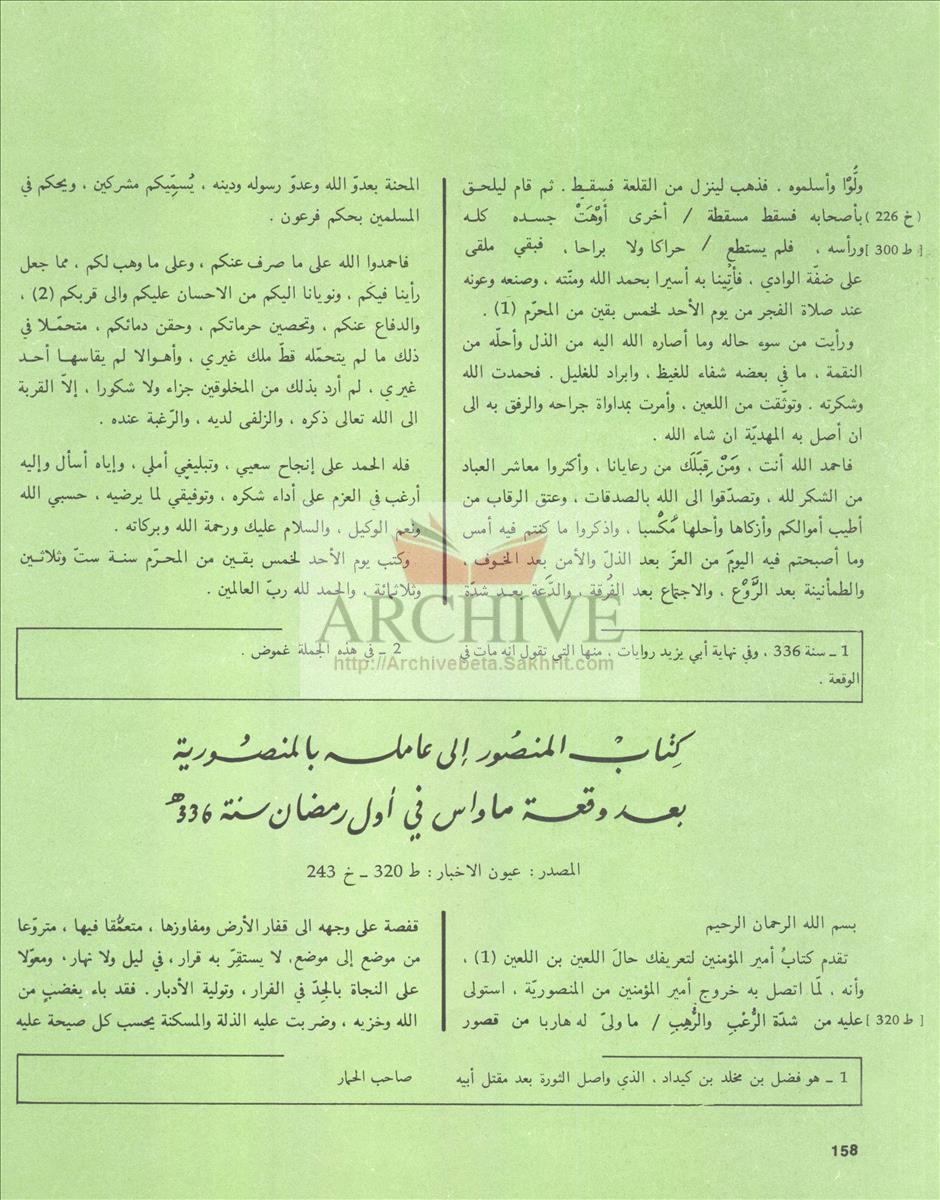 ولُّوْا وأسلموه . فذهب لينزل من القلعة فسقـط . ثم قام ليلحـق
(خ 226) بأصحابه فسقط مسقطة / أخرى أوْهَتْ جسـده كلـه
[ط 300] ورأسه ، فلم يستطع / حراكا ولا براحا ، فبقي ملقى
على ضفّة الوادي ، فأُتِينا به أسيرا بحمد الله ومنّته ، وصنعه وعونه
عند صلاة الفجر من يوم الأحد لخمس بقين من المحرّم (1) .
ورأيت من سوء حاله وما أصاره الله اليه من الذل وأحلّه من
النقمة ، ما في بعضه شفاء للغيظ ، وابراد للغليل . فحمدت الله
وشكرته . وتوثّقت من اللعين ، وأمرت بمداواة جراحه والرفق به الى
ان أصل به المهديّة ان شاء الله .
فاحمد الله أنت ، وَمَنْ قِبَلَك من رعايانا ، وأكثروا معاشر العباد
من الشكر لله ، وتصدّقوا الى الله بالصدقات ، وعتق الرقاب من
أطيب أموالكم وأزكاها وأحلها مَكْسبا ، واذكروا ما كنتم فيه أمس
وما أصبحتم فيه اليومَ من العزّ بعد الذلّ والأمن بعد الخـوف ،
والطمأنينة بعد الرَّوْع ، والاجتماع بعد الفُرقة ، والدَّعة بعـد شدّة
المحنة بعدوّ الله وعدوّ رسوله ودينه ، يُسمِّيكم مشركين ، ويحكم في
المسلمين بحكم فرعون .
فاحمدوا الله على ما صرف عنكم ، وعلى ما وهب لكم ، مما جعل
رأينا فيكم ، ونويانا اليكم من الاحسان عليكم والى قربكم (2) ،
والدفاع عنكم ، وتحصين حرماتكم ، وحقن دمائكم ، متحمّـلا في
ذلك ما لم يتحمّله قطّ ملك غيري ، وأهـوالا لم يقاسهـا أحـد
غيري ، لم أرد بذلك من المخلوقين جزاء ولا شكورا ، إلاّ القربة
الى الله تعالى ذكره ، والزلفى لديه ، والرّغبة عنده .
فله الحمد على إنجاح سعيي ، وتبليغي أملي ، وإياه أسأل وإليه
أرغب في العزم على أداء شكره ، وتوفيقي لما يرضيه ، حسبي الله
ونعم الوكيل ، والسلام عليك ورحمة الله وبركاته .
وكتب يوم الأحد لخمس بقين من المحرّم سنـة ستّ وثلاثـين
وثلاثمائة ، والحمد لله ربّ العالمين .
1 ـ سنة 336 ، وفي نهاية أبي يزيد روايات ، منها التي تقول انه مات في
الوقعة .
2 ـ في هذه الجملة غموض .
ARCHIVE
http://Archivebeta.Sakhrit.com
كِتَابْ المنصُور إلى عاملـه بالمنصُـورية
بعـد وقعـة ماواس في أول رمضان سنة 336هـ
المصدر : عيون الاخبار : ط 320 ـ خ 243
بسم الله الرحمان الرحيم
تقدم كتابُ أمير المؤمنين لتعريفك حالَ اللعين بن اللعين (1) ،
وأنه ، لمّا اتصل به خروج أمير المؤمنين من المنصوريّة ، استولى
[ط 320] عليه من شدّة الرُّعْبِ والرُّهبِ / ما ولىّ له هاربا من قصور
قفصة على وجهه الى قفار الأرض ومفاوزها ، متعمُّقا فيها ، متروّعا
من موضع إلى موضع، لا يستقِرّ به قرار ، في ليل ولا نهار، ومعوّلا
على النجاة بالجدّ في الفرار ، وتولية الأدبار . فقد باء بغضبٍ من
الله وخزيه ، وضربت عليه الذلة والمسكنة يحسب كل صيحة عليه
1 ـ هو فضل بن مخلد بن كيداد ، الذي واصل الثورة بعد مقتل أبيه
صاحب الحمار
158